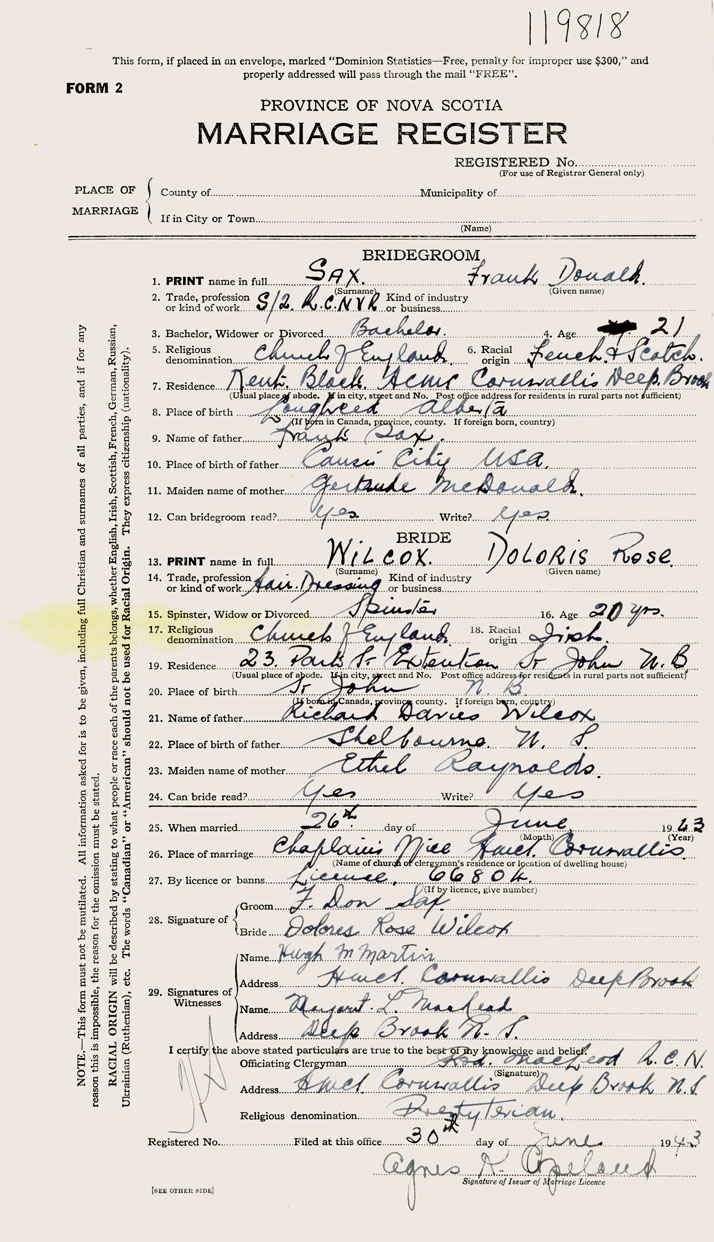 119818
This form, if placed in an envelope, marked "Dominion Statistics—Free, penalty for improper use $300," and
properly addressed will pass through the mail "FREE".
FORM 2
PROVINCE OF NOVA SCOTIA
MARRIAGE REGISTER
REGISTERED No.
(For use of Registrar General only)
PLACE OF MARRIAGE
County of Municipality of
If in City or Town
(Name)
BRIDEGROOM
1. PRINT name in full SAX. Frank Donald.
(Surname) (Given name)
2. Trade, profession or kind of work S/2. R.C.N.V.R Kind of industry or business
3. Bachelor, Widower or Divorced Bachelor. 4. Age 21
5. Religious denomination Church of England. 6. Racial origin Fench & Scotch.
7. Residence Kent. Block. Hcmc Cornwallis Deep Brook
(Usual place of abode. If in city, street and No. Post office address for residents in rural parts not sufficient)
8. Place of birth Lougheed Alberta
(If born in Canada, province, county. If foreign born, country)
9. Name of father Frank Sax.
10. Place of birth of father City USA.
11. Maiden name of mother Gertrude McDonald.
12. Can bridegroom read? yes Write? yes.
BRIDE
13. PRINT name in full WILCOX. DOLORIS Rose
(Surname) (Given name)
14. Trade, profession or kind of work Hair. Dressing Kind of industry or business
15. Spinster, Widow or Divorced Spinster 16. Age 20 yrs.
17. Religious denomination Church of England. 18. Racial origin Irish.
19. Residence 23. Park St Extention St John N.B
(Usual place of abode. If in city, street and No. Post office address for residents in rural parts not sufficient)
20. Place of birth St John N.B.
(If born in Canada, province, county. If foreign born, country)
21. Name of father Richard Davies Wilcox
22. Place of birth of father Shelbourne N. S.
23. Maiden name of mother Ethel Raynolds.
24. Can bride read? Yes Write? Yes
25. When married 26th day of June 1943
(Month) (Year)
26. Place of marriage Chaplains Hmcs. Cornwallis.
(Name of church or clergyman's residence or location of dwelling house)
27. By licence or banns License. 66804.
(If by licence, give number)
28. Signature of
Groom F. Don Sax
Bride Dolores Rose Wilcox
29. Signatures of Witnesses
Name Hugh M Martin
Address Hmcs. Cornwallis Deep Brook
Name Margaret L MacLeod
Address Deep Brook N. S.
I certify the above stated particulars are true to the best of my knowledge and belief.
Officiating Clergyman MacLeod R.C.N.
(Signature)
Address Hmcs Cornwallis Deep Brook N.S
Religious denomination Presbyterian.
Registered No. Filed at this office 30th day of June 1943
Agnes K Copeland
Signature of Issuer of Marriage Licence
[SEE OTHER SIDE]
NOTE.—This form must not be mutilated. All information asked for is to be given, including full Christian and surnames of all parties, and if for any
reason this is impossible, the reason for the omission must be stated.
RACIAL ORIGIN will be described by stating to what people or race each of the parents belongs, whether English, Irish, Scottish, French, German, Russian,
Ukrainian (Ruthenian), etc. The words "Canadian" or "American" should not be used for Racial Origin. They express citizenship (nationality).